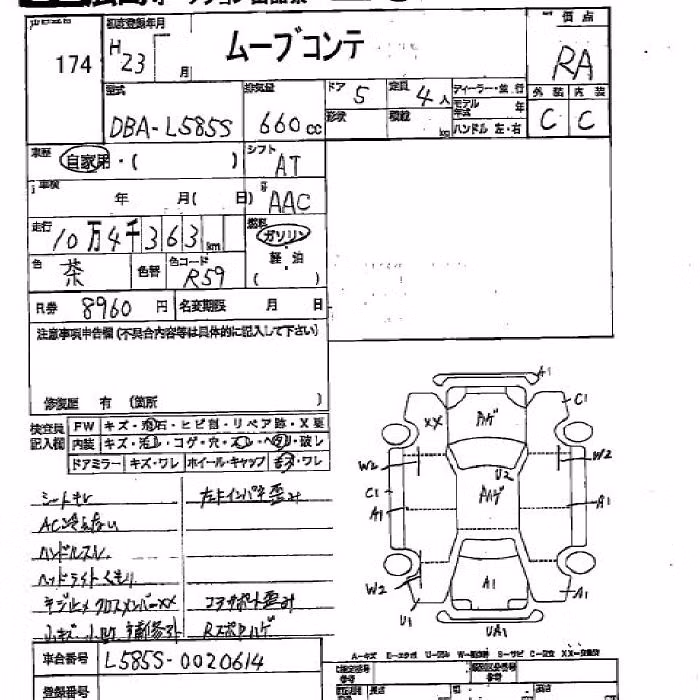 174
初度登録年月
H23 月
ムーブコンテ
評価点
RA
型式
DBA-L585S
排気量
660cc
ドア 5
定員 4人
形状
積載 kg
ディーラー・並行
モデル年式 年
ハンドル 左・右
外装 内装
C C
車歴 自家用・( )
シフト AT
車検 年 月( 日)
AAC
走行 10万4千363km
燃料 ガソリン
軽油
( )
色 茶
色替
色コード R59
R券 8960円
名変期限 月 日
注意事項申告欄(不具合内容等は具体的に記入して下さい)
修復歴 有 (箇所 )
検査員記入欄
FW キズ・飛石・ヒビ割・リペア跡・X要
内装 キズ・汚れ・コゲ・穴・スレ・ヘタリ・破レ
ドアミラー キズ・ワレ ホイール・キャップ キズ・ワレ
シートキレ
左インパネ歪み
AC冷えない
ハンドルスレ
ヘッドライトくもり
クロスメンバーXX
コアサポート歪み
車台番号 L585S-0020614
登録番号
A1
C1
XX
アゲ
W2
W2
U2
C1
アゲ
A1
A1
W2
A1
A1
U1
UA1